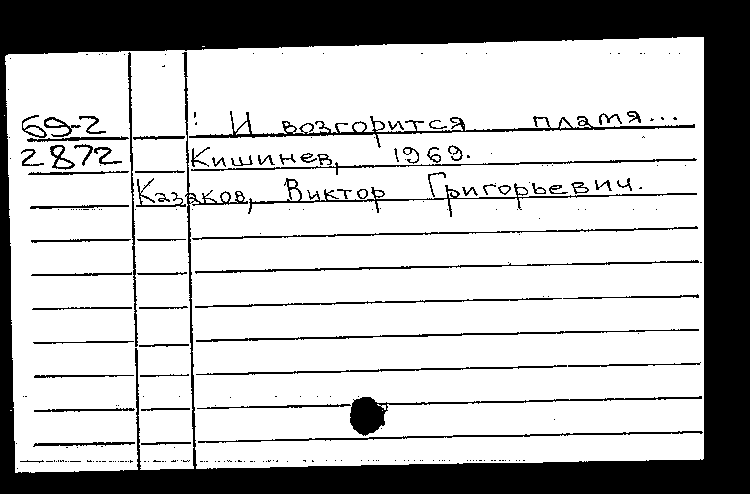 69-2 И возгорится пламя...
2872 Кишинев, 1969.
Казаков, Виктор Григорьевич.